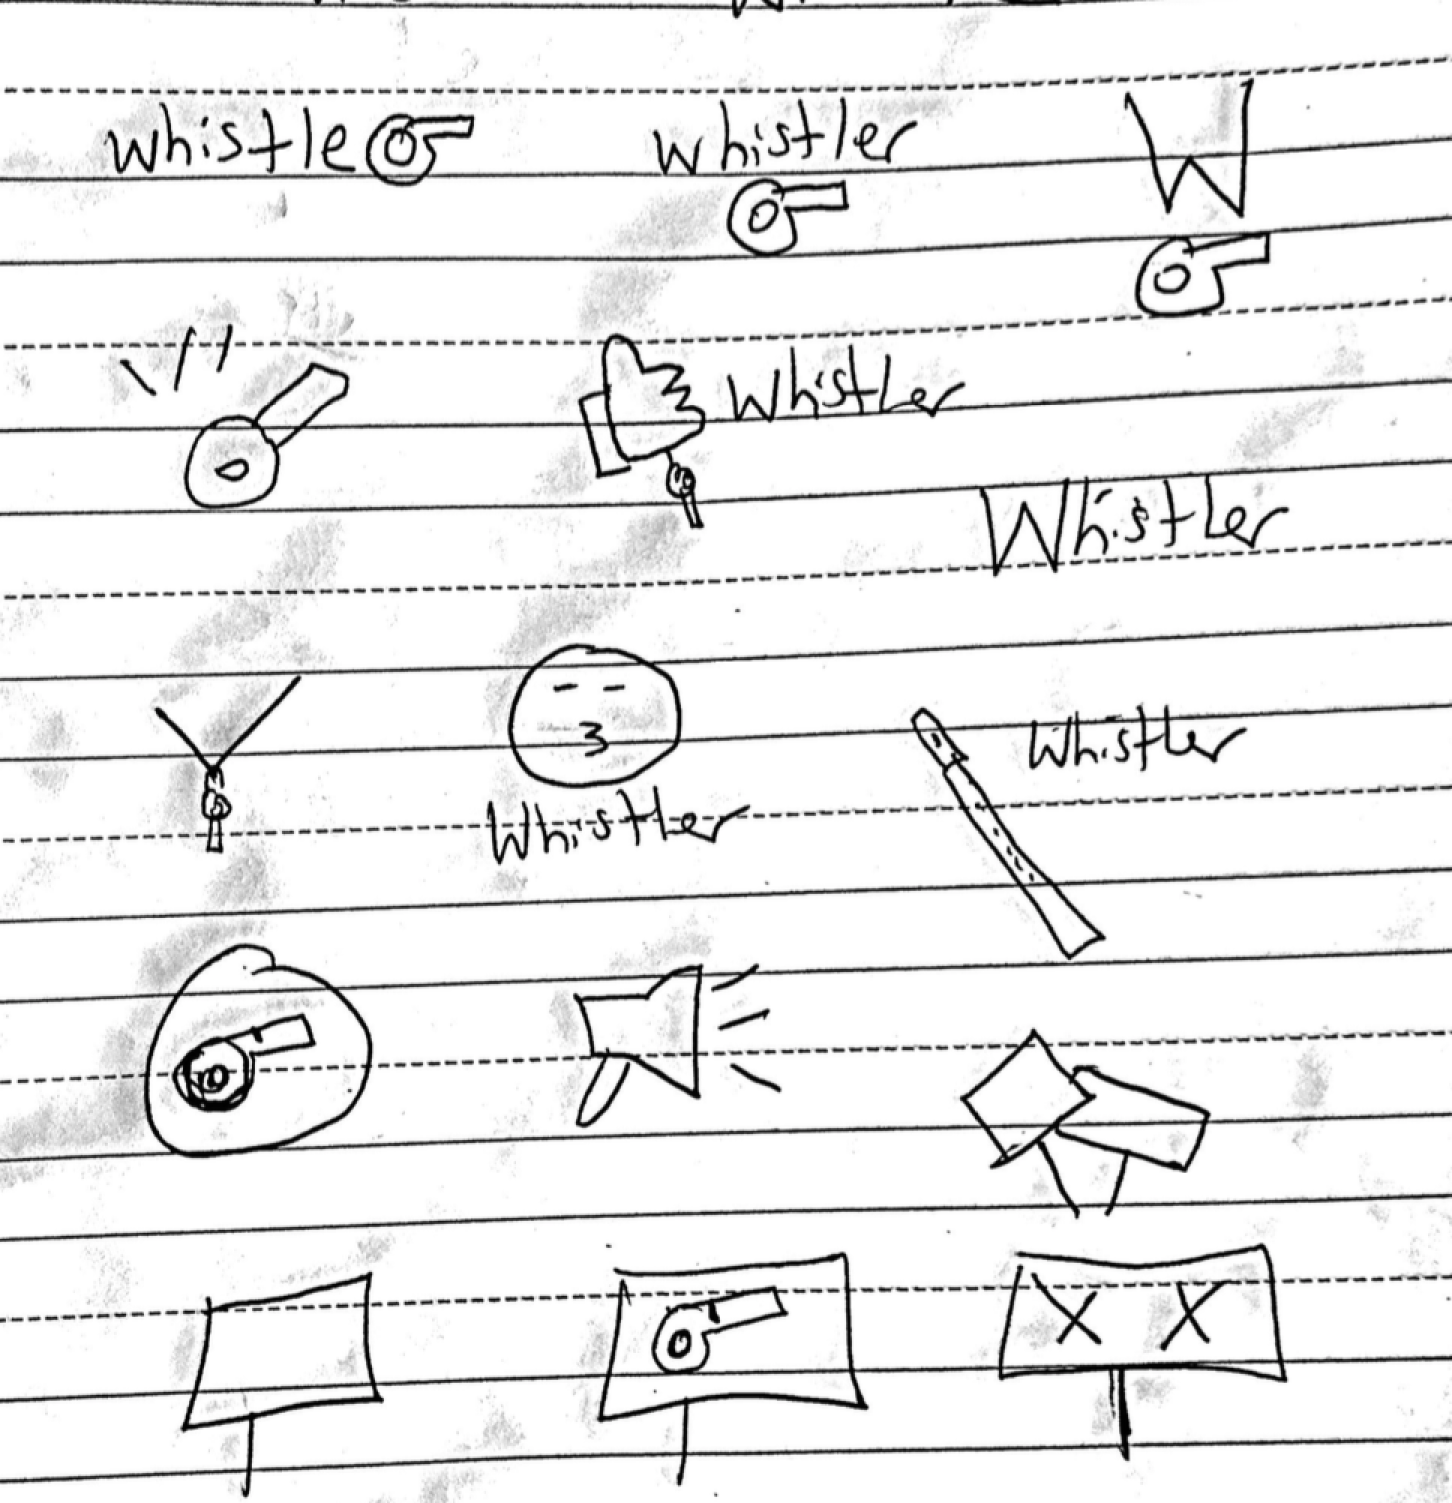 whistle
whistler
W
Whistler
Whistler
Whistler
Whistler
X X